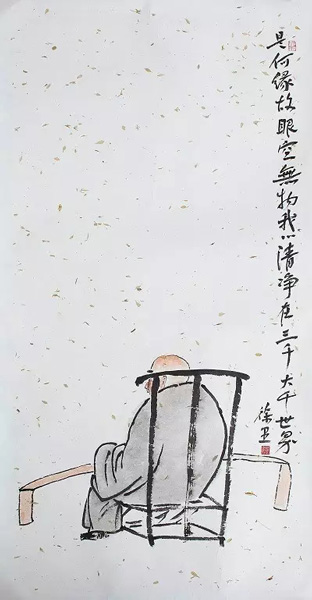 是何缘故眼空無物我心清净在三千大千世界
徐